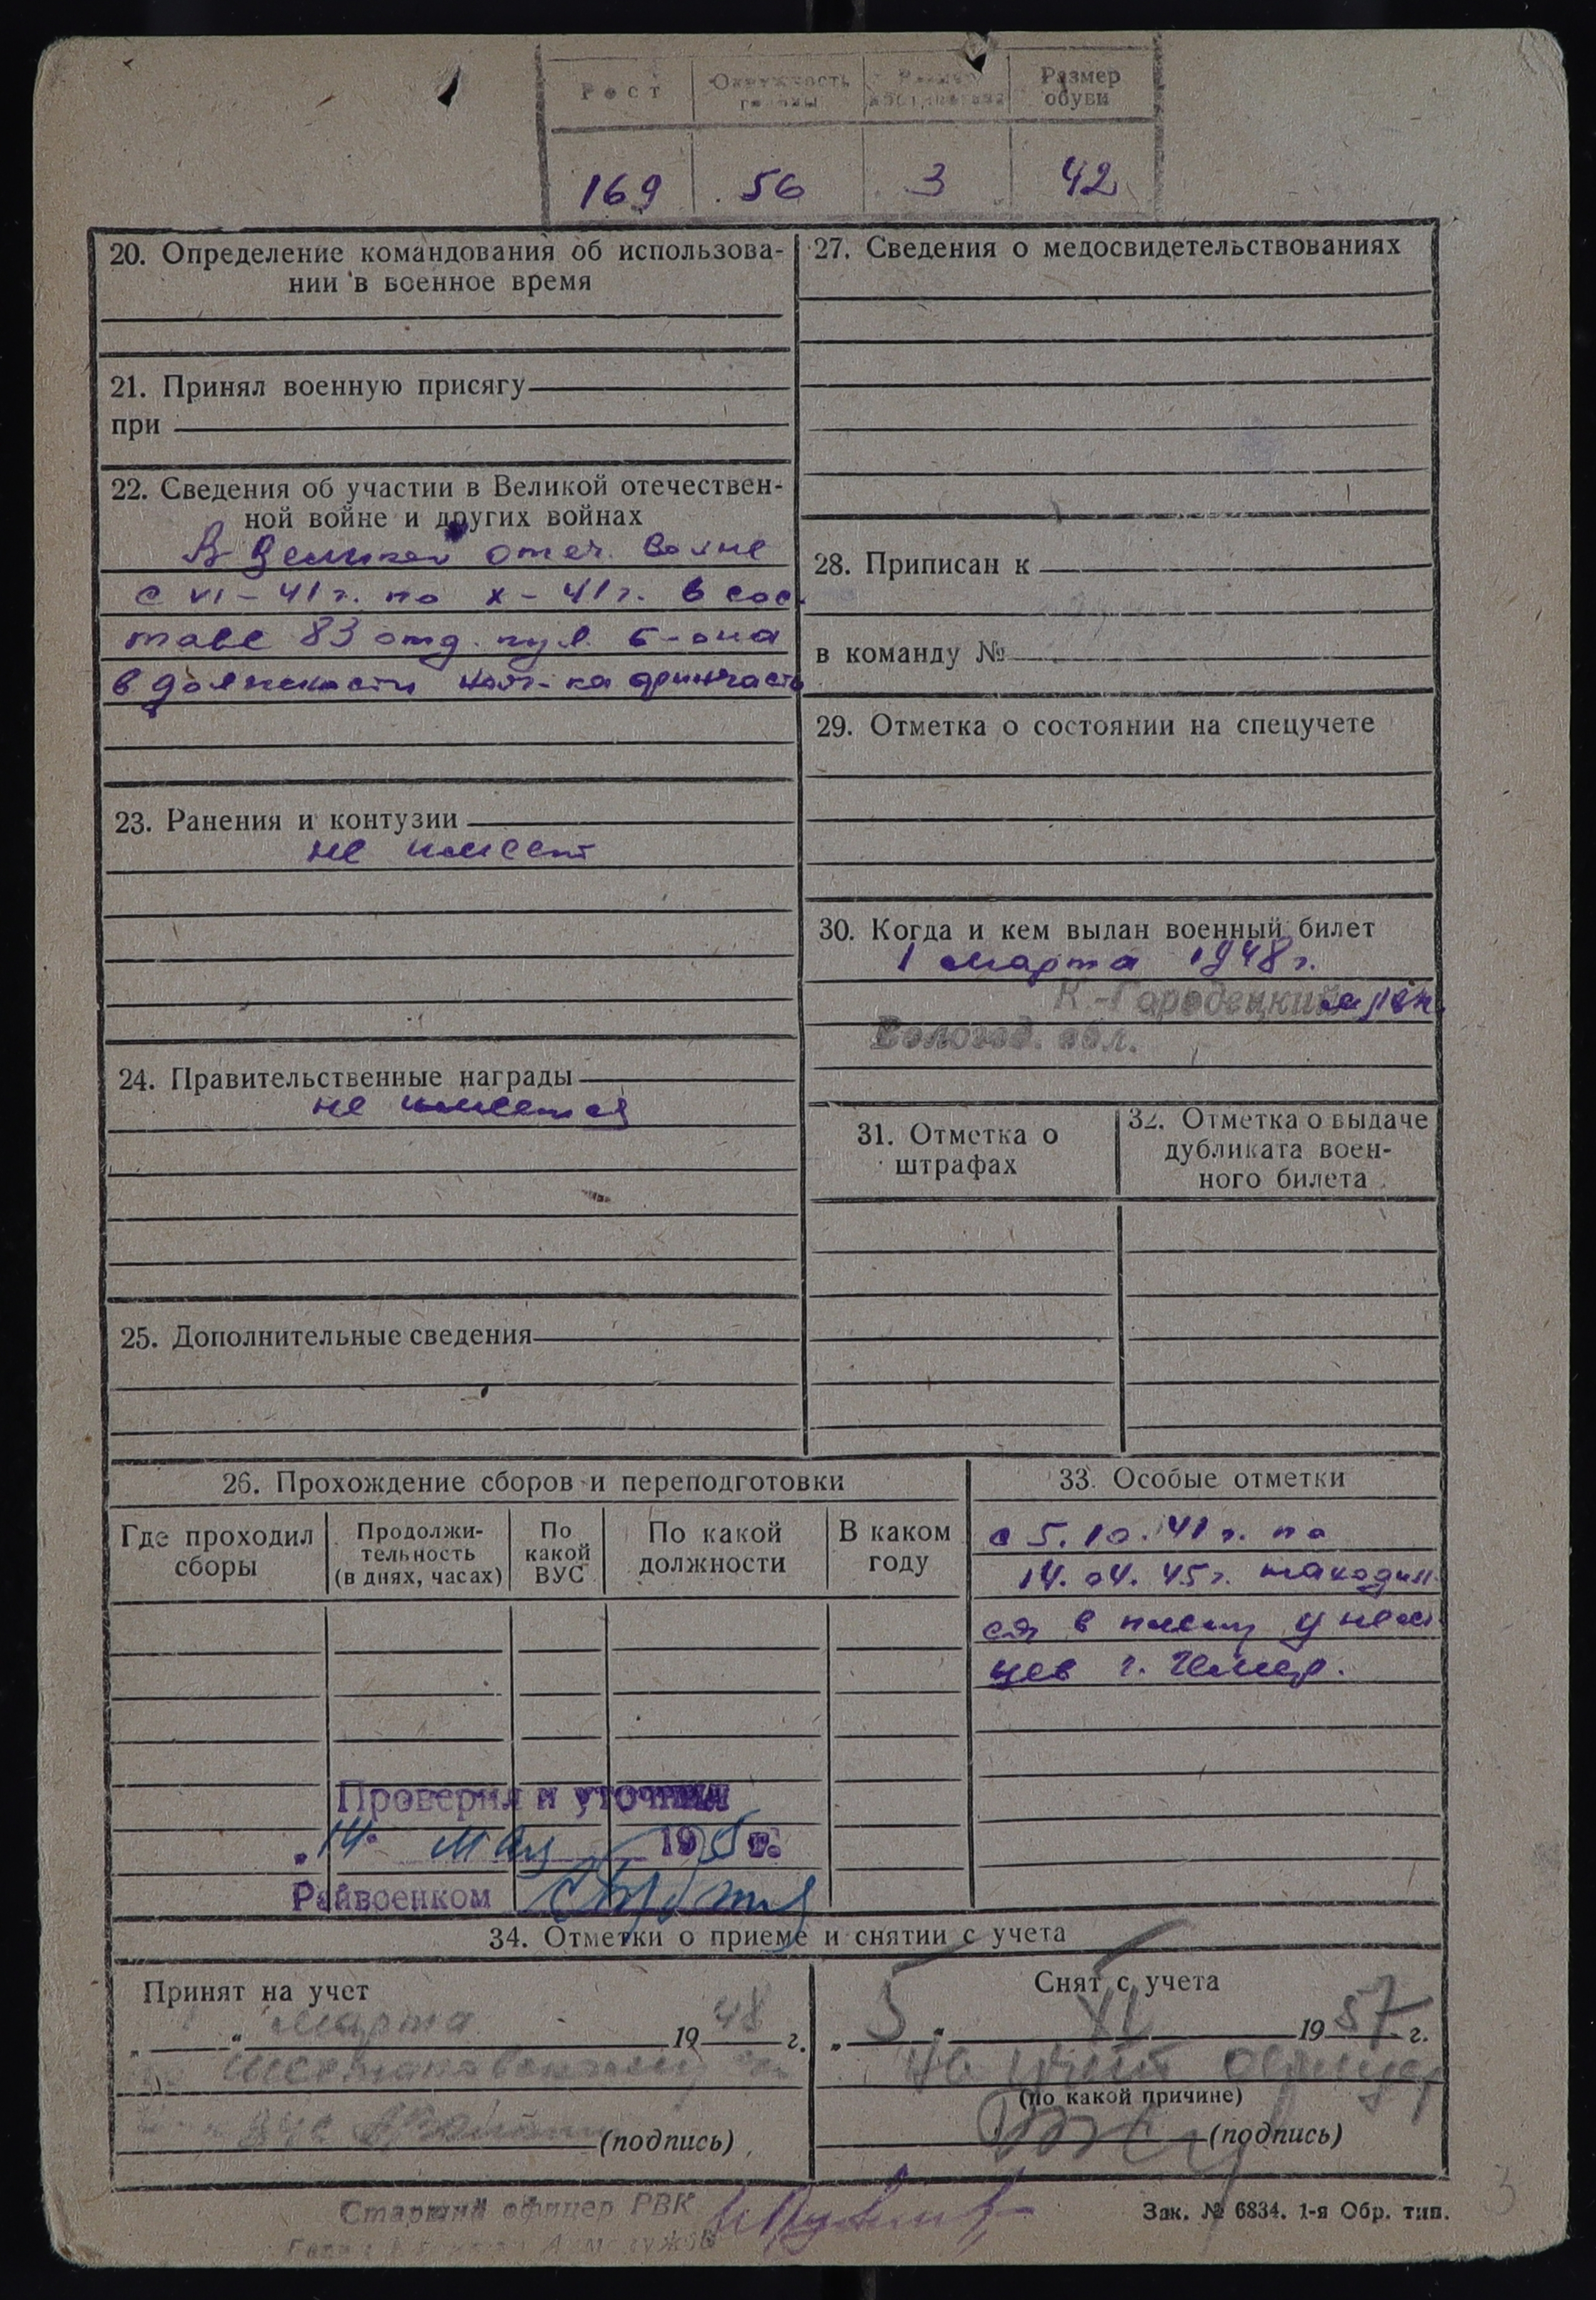 Рост
Окружность
головы
Размер
Размер
обуви
169
56
3
42
20. Определение командования об использова-
нии в военное время
21. Принял военную присягу
при
22. Сведения об участии в Великой отечествен-
ной войне и других войнах
В Великой отеч. войне
с VI-41 г. по X-41 г. в сос
таве 83 отд. пул. б-она
в должности нач-ка финчасти
23. Ранения и контузии
не имеет
24. Правительственные награды
не имеется
25. Дополнительные сведения
27. Сведения о медосвидетельствованиях
28. Приписан к
в команду №
29. Отметка о состоянии на спецучете
30. Когда и кем выдан военный билет
1 марта 1948 г.
К.-Городецкий
Вологод. обл.
31. Отметка о
штрафах
32. Отметка о выдаче
дубликата воен-
ного билета
26. Прохождение сборов и переподготовки
Где проходил
сборы
Продолжи-
тельность
(в днях, часах)
По
какой
ВУС
По какой
должности
В каком
году
33. Особые отметки
с 5.10.41 г. по
14.04.45 г. находил
ся в плену у нем
цев г.
Проверил и уточнил
„14" мая 195 г.
Райвоенком
34. Отметки о приеме и снятии с учета
Принят на учет
„ " марта 1948 г.
(подпись)
Снят с учета
„5" XI 1957 г.
на учет офицер
(по какой причине)
(подпись)
Старший офицер РВК
Зак. № 6834. 1-я Обр. тип.
3